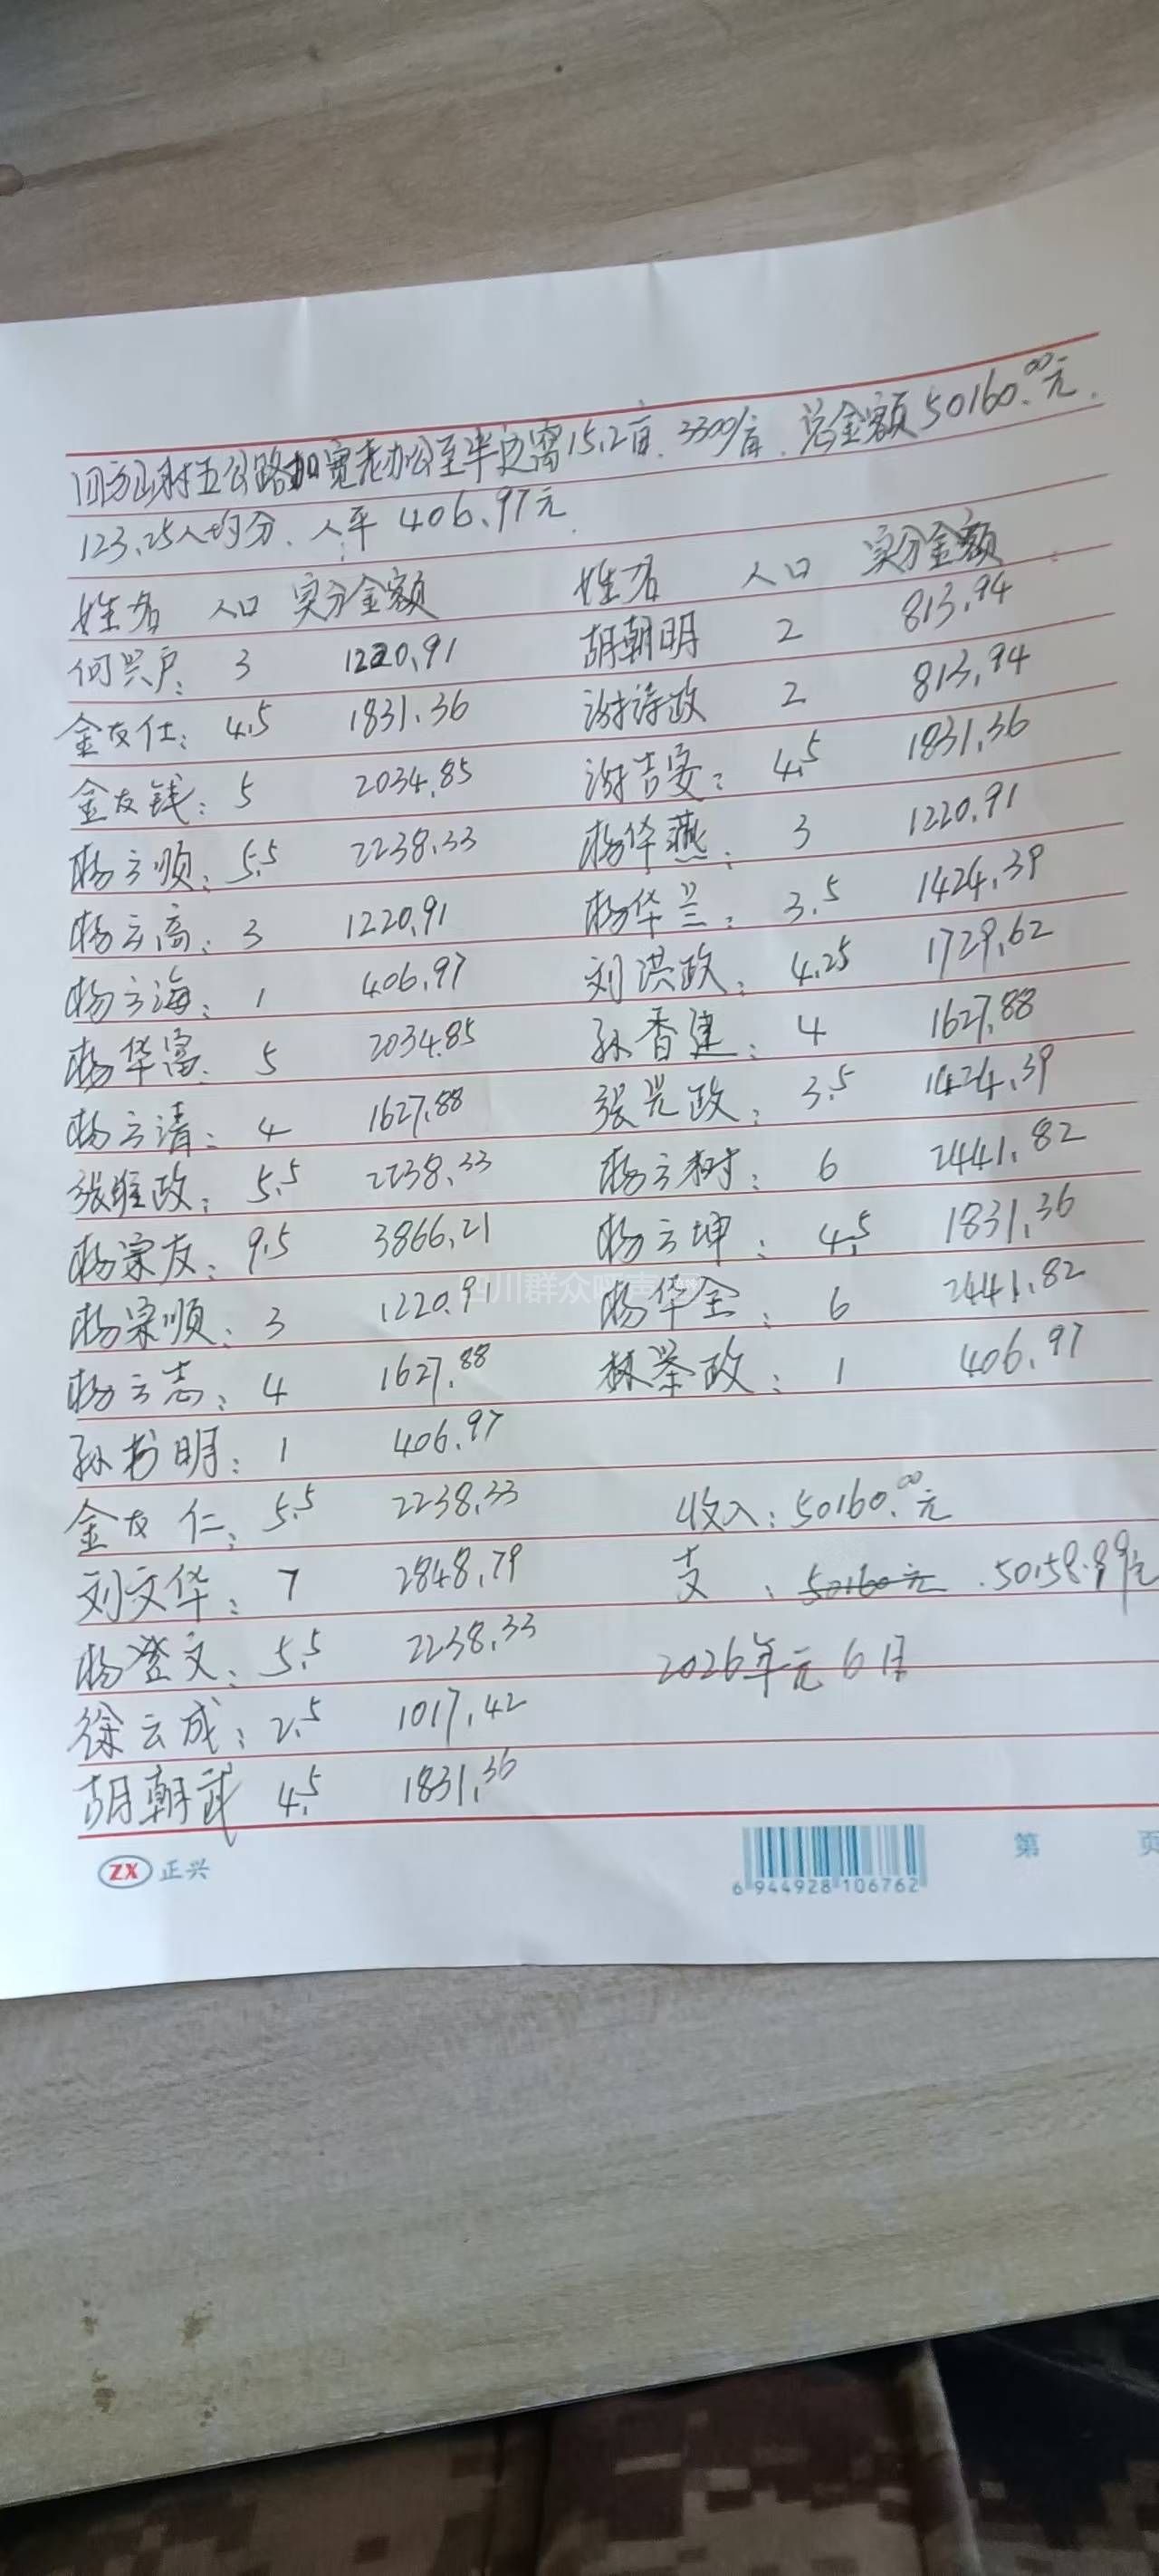 四方山村五公路加宽老办公至半边窝15.2亩.3300/亩.总金额50160.00元.
123.25人均分.人平406.97元.
姓名 人口 实分金额 姓名 人口 实分金额
何兴户: 3 1220.91 胡朝明 2 813.94
金友仕: 4.5 1831.36 谢诗政 2 813.94
金友钱: 5 2034.85 谢吉安: 4.5 1831.36
杨立顺: 5.5 2238.33 杨华燕: 3 1220.91
杨立高: 3 1220.91 杨华兰: 3.5 1424.39
杨立海: 1 406.97 刘洪政: 4.25 1729.62
杨华富: 5 2034.85 孙香建: 4 1627.88
杨立清: 4 1627.88 张光政: 3.5 1424.39
张维政: 5.5 2238.33 杨立树: 6 2441.82
杨宗友: 9.5 3866.21 杨立坤: 4.5 1831.36
杨宗顺: 3 1220.91 杨华全: 6 2441.82
杨立志: 4 1627.88 林荣政: 1 406.97
孙书明: 1 406.97
金友仁: 5.5 2238.33 收入: 50160.00元
刘文华: 7 2848.79 支: 50160元 .50158.89元
杨登文: 5.5 2238.33 2026年元6日
徐云成: 2.5 1017.42
胡朝武 4.5 1831.36
ZX 正兴
6 944928 106762
第 页
四川群众呼声